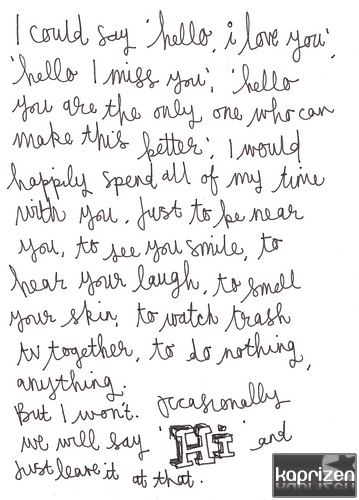 I could say 'hello, i love you',
'hello I miss you', 'hello
you are the only one who can
make this better'. I would
happily spend all of my time
with you. Just to be near
you, to see you smile, to
hear your laugh, to smell
your skin, to watch trash
tv together, to do nothing,
anything.
But I won't. Occasionally
we will say 'Hi' and
just leave it at that.
kaprizen